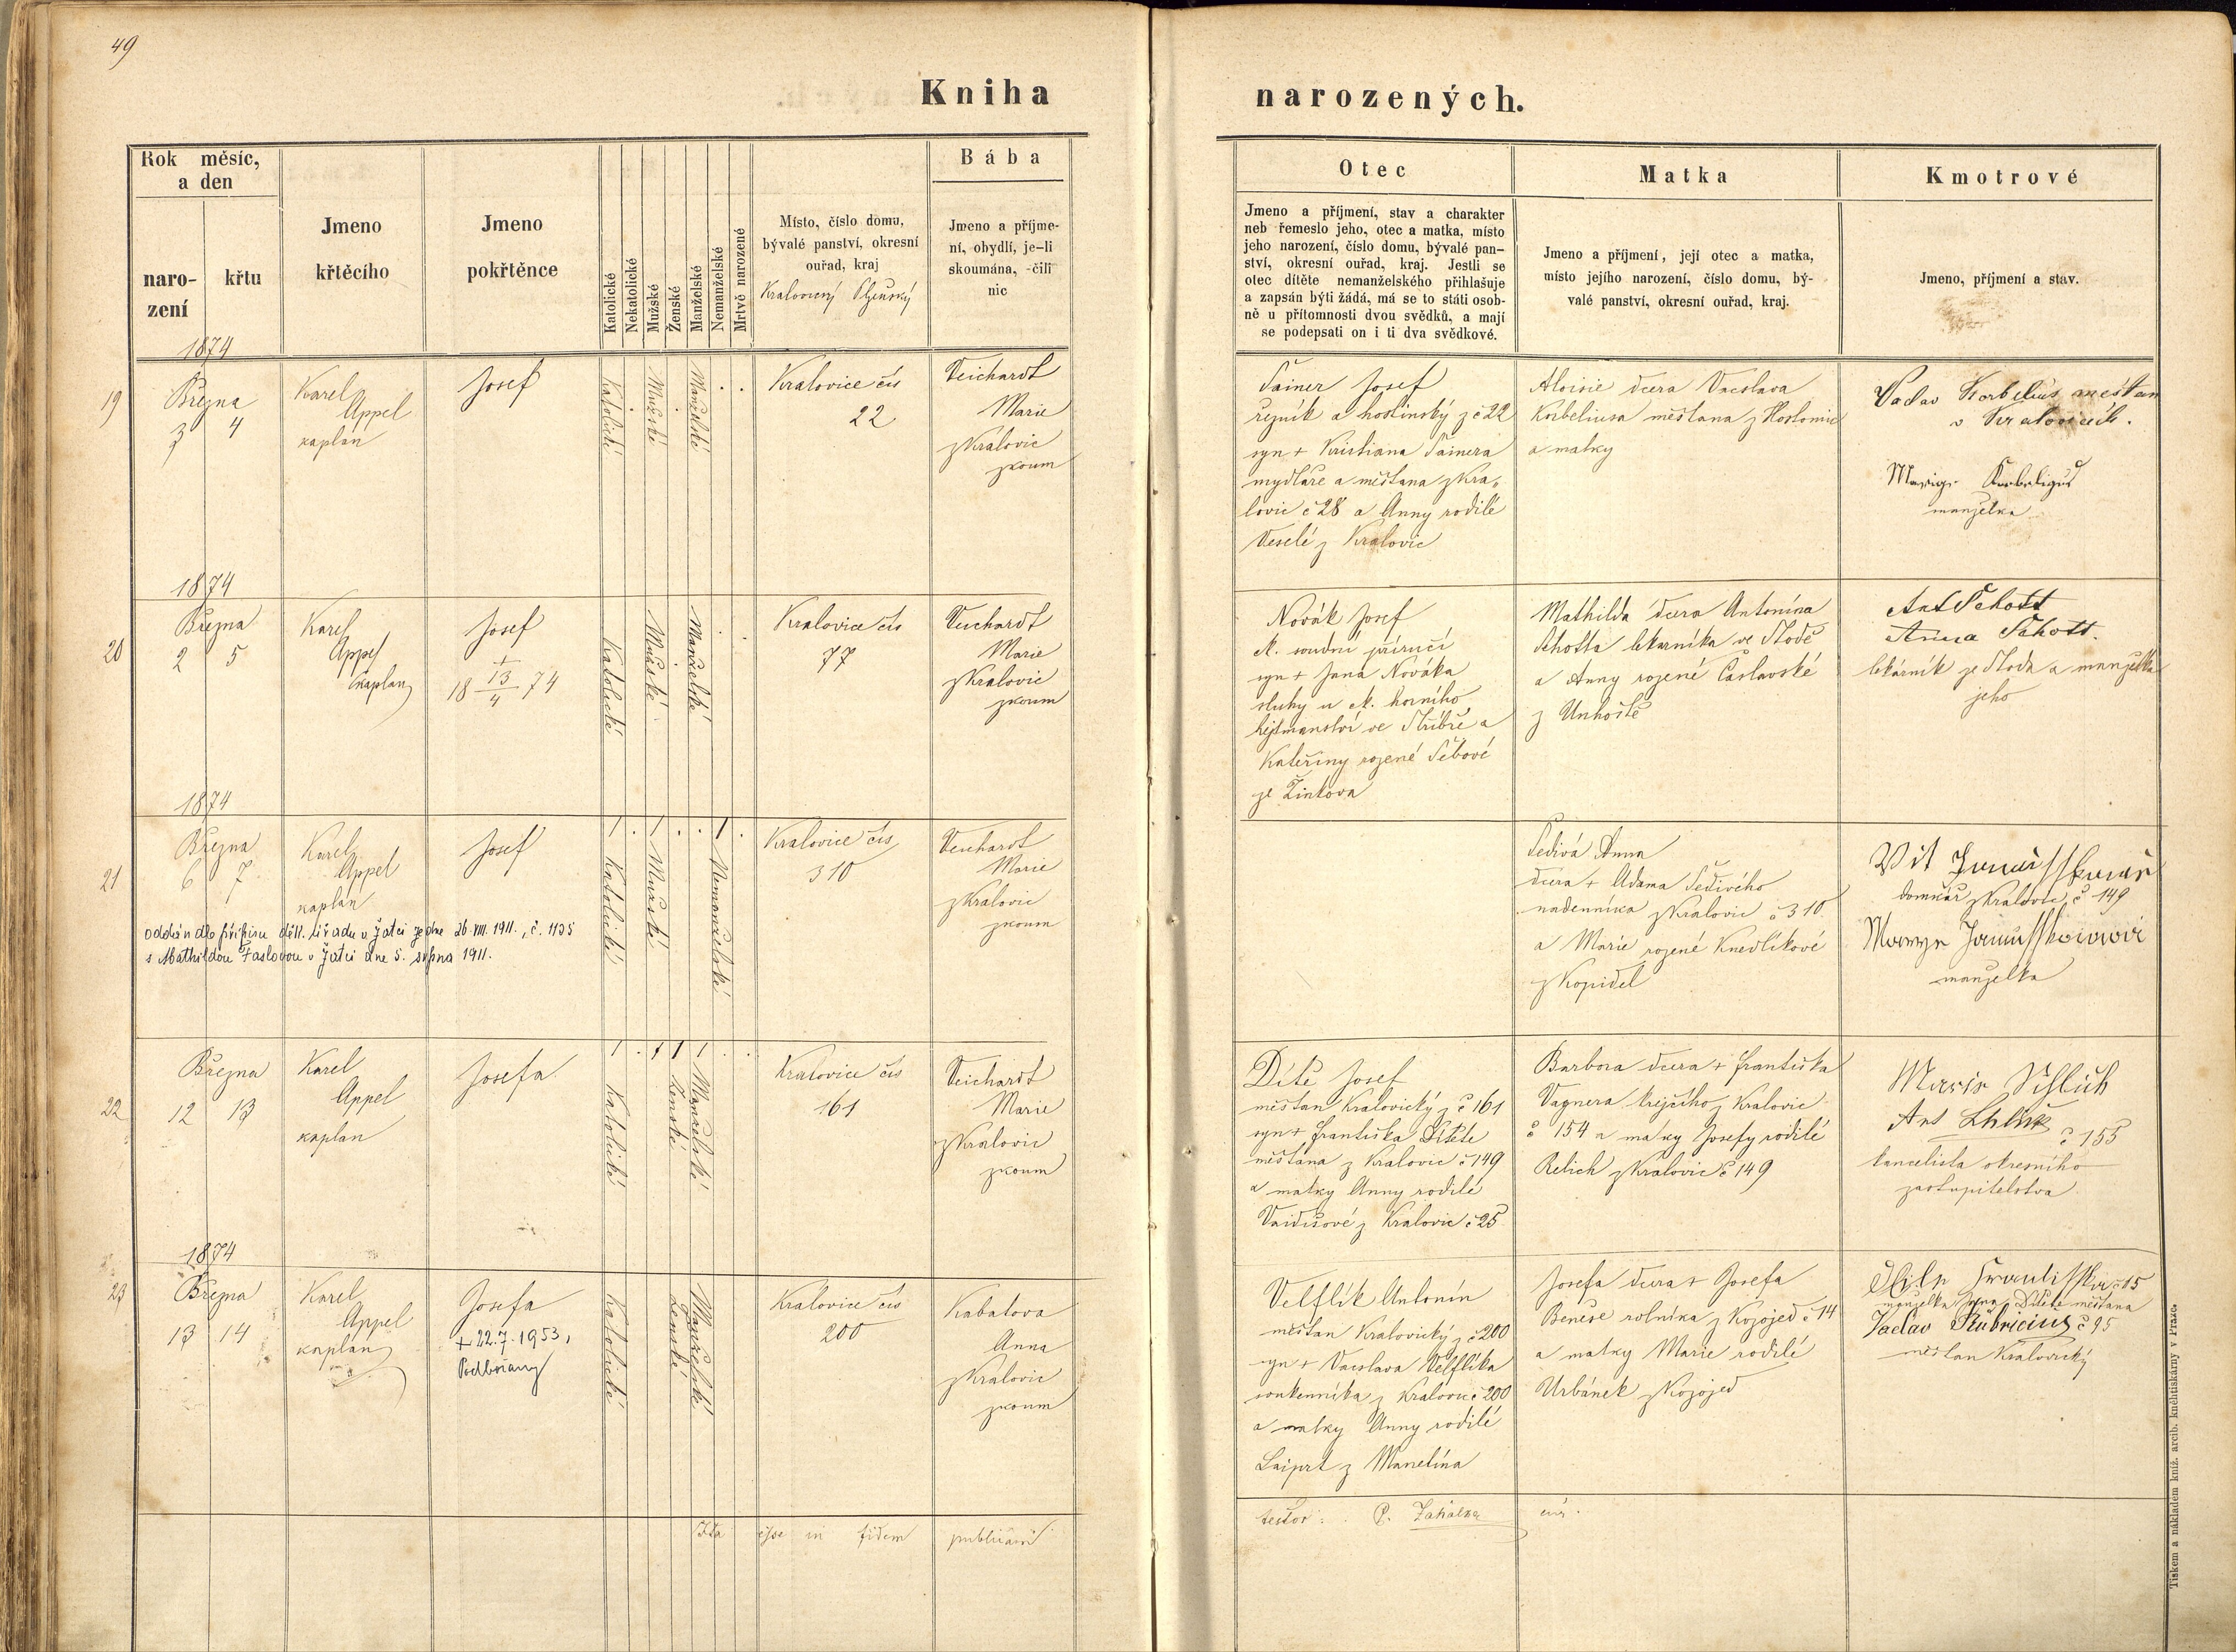 49
Kniha
narozených.
Rok měsíc,
a den
naro-
zení
křtu
Jmeno
křtěcího
Jmeno
pokřtěnce
Katolické
Nekatolické
Mužské
Ženské
Manželské
Nemanželské
Mrtvě narozené
Místo, číslo domu,
bývalé panství, okresní
ouřad, kraj
Kralovický Plzeňský
Bába
Jmeno a příjme-
ní, obydlí, je-li
skoumána, -čili
nic
Otec
Jmeno a příjmení, stav a charakter
neb řemeslo jeho, otec a matka, místo
jeho narození, číslo domu, bývalé pan-
ství, okresní ouřad, kraj. Jestli se
otec dítěte nemanželského přihlašuje
a zapsán býti žádá, má se to státi osob-
ně u přítomnosti dvou svědků, a mají
se podepsati on i ti dva svědkové.
Matka
Jmeno a příjmení, její otec a matka,
místo jejího narození, číslo domu, bý-
valé panství, okresní ouřad, kraj.
Kmotrové
Jmeno, příjmení a stav.
1874
19
Března
3 4
Karel
Appel
kaplan
Josef
Katolické
Mužské
Manželské
Kralovice čís
22
Veichardt
Marie
z Kralovic
zkoum
Šainer Josef
řezník a hostinský z č 22
syn + Kristiana Šainera
mydláře a měštana z Kra-
lovic č 28 a Anny rodilé
Veselé z Kralovic
Aloisie dcera Vacslava
Korbeliusa měštana z Hostomic
a matky
Vaclav Korbelius meštan
v Kralovicich.
Marige Korbeligus
manželka
1874
20
Března
2 5
Karel
Appel
kaplan
Josef
+
18 13/4 74
Katolické
Mužské
Manželské
Kralovice čís
77
Veichardt
Marie
z Kralovic
zkoum
Novák Josef
soudní příručí
syn + Jana Nováka
sluhy u horního
hejtmanství ve Stříbře a
Kateřiny rozené Šebové
ze Žinkova
Mathilda dcera Antonína
Schotta lekarníka ve Stodě
a Anny rozené Čáslavské
z Unhoště
Ant Schott
Anna Schott.
lekárník ze Stoda a manželka
jeho
1874
21
Března
6 7
Karel
Appel
kaplan
Josef
oddán dle přípisu děk. úřadu v Žatci ze dne 26. VIII. 1911., č. 1125
s Mathildou Faslovou v Žatci dne 5. srpna 1911.
1 . 1 . . 1 .
Katolické
Mužské
Nemanželské
Kralovice čís
310
Veichardt
Marie
z Kralovic
zkoum
Šedivá Anna
dcera + Adama Šedivého
nadenníka z Kralovic č 310
a Marie rozené Knedlíkové
z Kopidel
Vit
domkář z Kralovic č 149
manželka
22
Března
12 13
Karel
Appel
kaplan
Josefa
1 . 1 1 1 . .
Katolické
Ženské
Manželské
Kralovice čís
161
Veichardt
Marie
z Kralovic
zkoum
Dítě Josef
měštan Kralovický z č 161
syn + Františka Dítěte
měštana z Kralovic č 149
a matky Anny rodilé
Vaidišové z Kralovic č 25
Barbora dcera + Františka
Vagnera krejčího z Kralovic
č 154 a matky Josefy rodilé
Relich z Kralovic č 149
Marie
Ant
č 155
kancelista okresního
zastupitelstva
1874
23
Března
13 14
Karel
Appel
kaplan
Josefa
+ 22.7.1953,
Podbořany
Katolické
Ženské
Manželské
Kralovice čís
200
Kabatova
Anna
z Kralovic
zkoum
Velflík Antonín
měštan Kralovický z č 200
syn + Vacslava Velflíka
soukenníka z Kralovic č 200
a matky Anny rodilé
Laiprt z Manetína
Josefa dcera + Josefa
Beneše rolníka z Kozojed č 14
a matky Marie rodilé
Urbánek z Kozojed
č 15
manželka Jana Dítěte měštana
Vaclav Stübricius č 95
měštan Kralovický
Ita esse in fidem publicam
testor: P. Zahálka